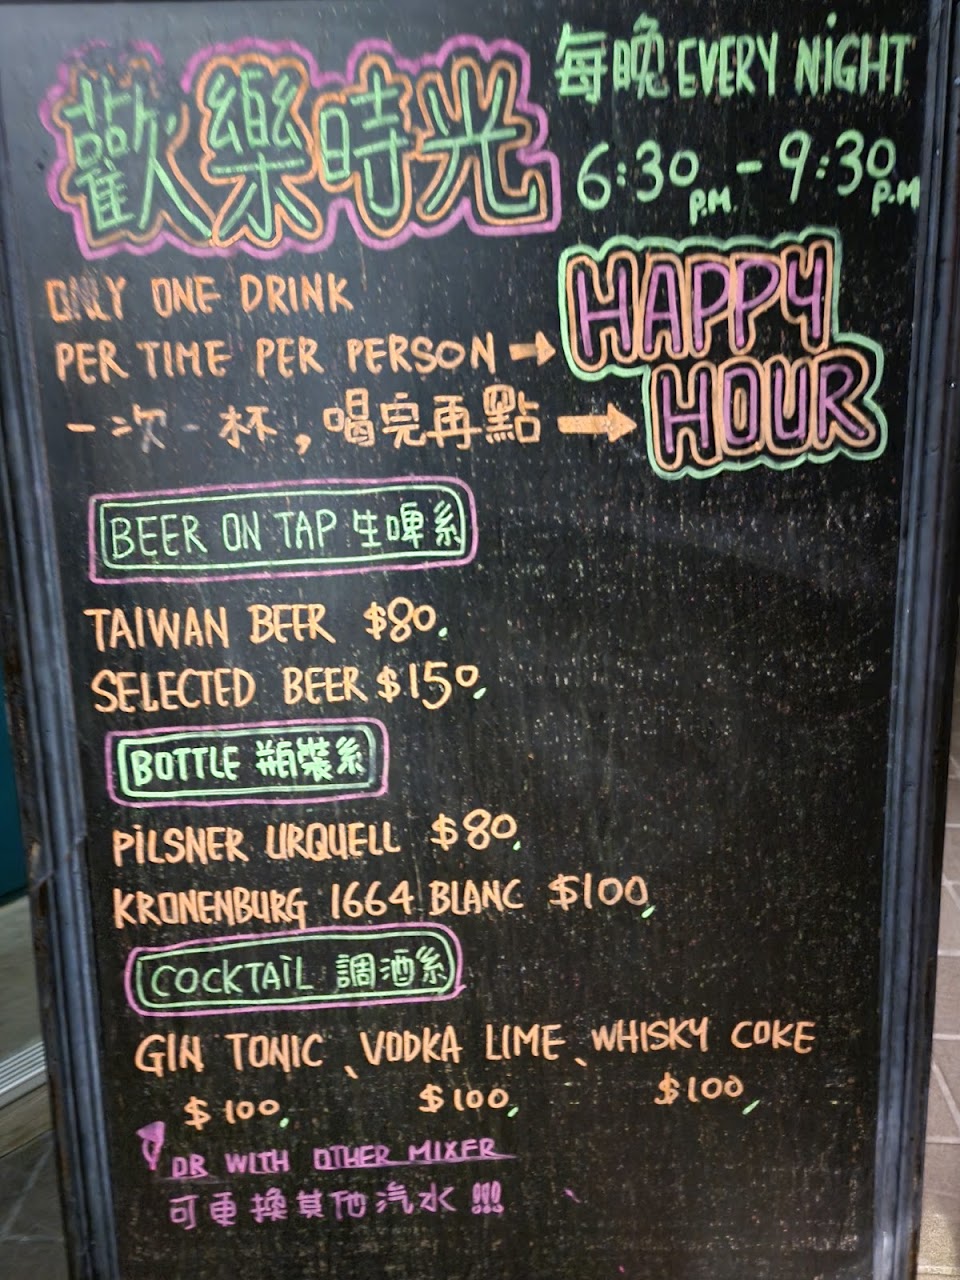 歡樂時光
每晚 EVERY NIGHT
6:30 P.M. - 9:30 P.M
ONLY ONE DRINK
PER TIME PER PERSON →
一次一杯，喝完再點 →
HAPPY
HOUR
BEER ON TAP 生啤系
TAIWAN BEER $80.
SELECTED BEER $150.
BOTTLE 瓶裝系
PILSNER URQUELL $80.
KRONENBURG 1664 BLANC $100.
COCKTAIL 調酒系
GIN TONIC、VODKA LIME、WHISKY COKE
$100. $100. $100.
OR WITH OTHER MIXER
可更換其他汽水!!!